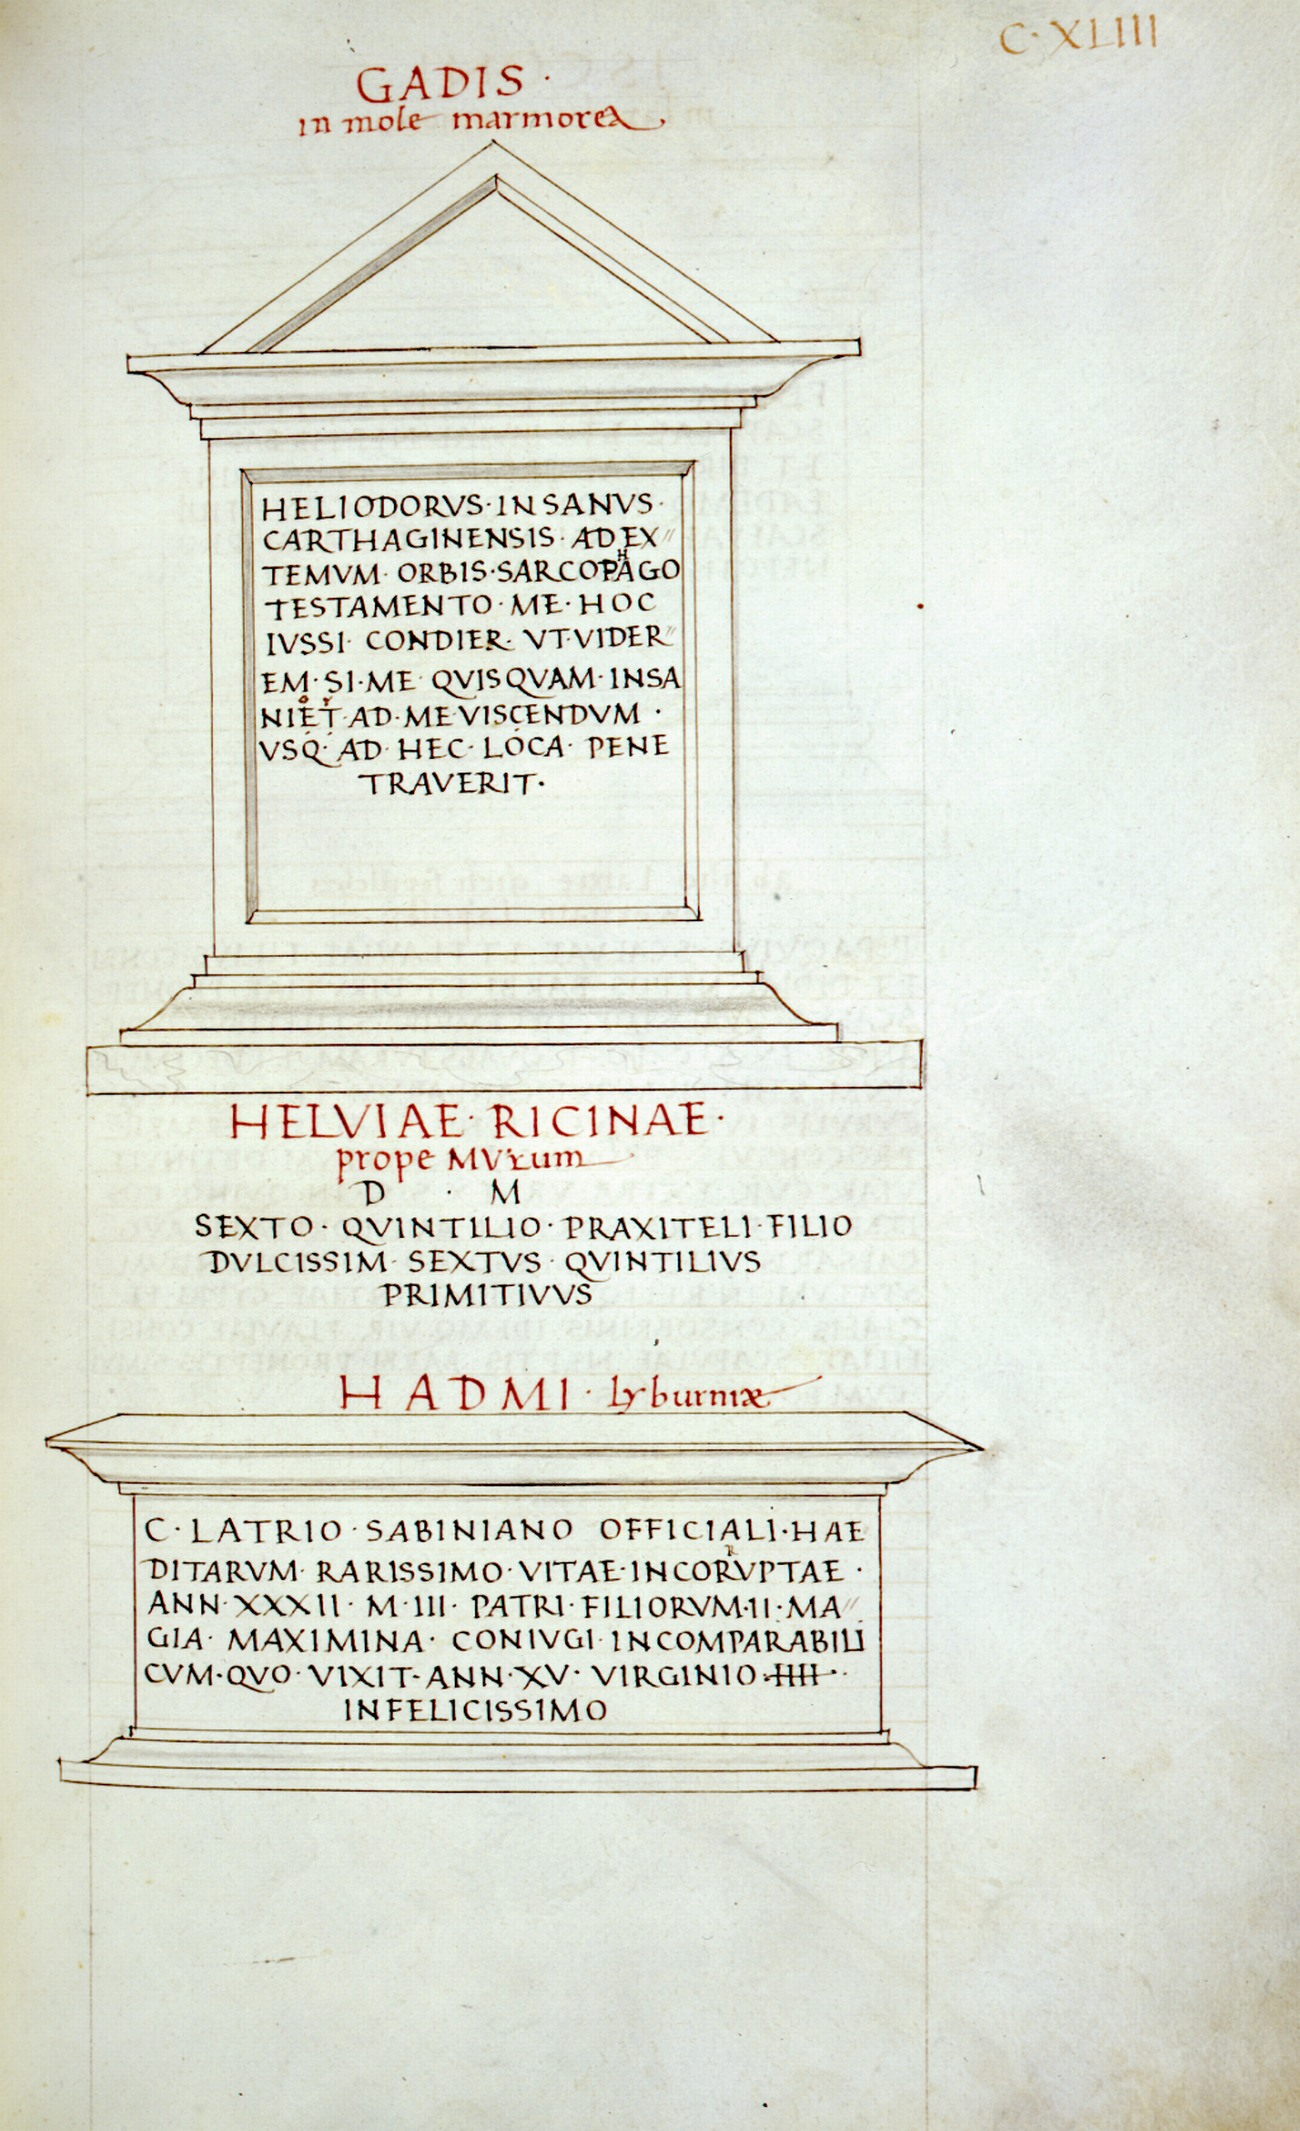 C·XLIIII
GADIS·
in mole marmorea
HELIODORVS·INSANVS·
CARTHAGINENSIS·AD EX//
TEMVM·ORBIS·SARCOPHAGO
TESTAMENTO·ME·HOC
IVSSI·CONDIER·VT·VIDER//
EM·SI·ME·QVISQVAM·INSA
NIOR·AD·ME·VISENDVM·
VSQ·AD·HEC·LOCA·PENE
TRAVERIT·
HELVIAE·RICINAE·
prope MVrum
D · M
SEXTO·QVINTILIO·PRAXITELI·FILIO
DVLCISSIM·SEXTVS·QVINTILIVS
PRIMITIVVS
HADMI·Lyburniæ
C·LATRIO·SABINIANO OFFICIALI·HAE
DITARVM·RARISSIMO·VITAE·INCORRVPTAE·
ANN·XXXII·M·III·PATRI·FILIORVM·II·MA//
GIA·MAXIMINA·CONIVGI·INCOMPARABILI
CVM·QVO·VIXIT·ANN·XV·VIRGINIO·IIII·
INFELICISSIMO